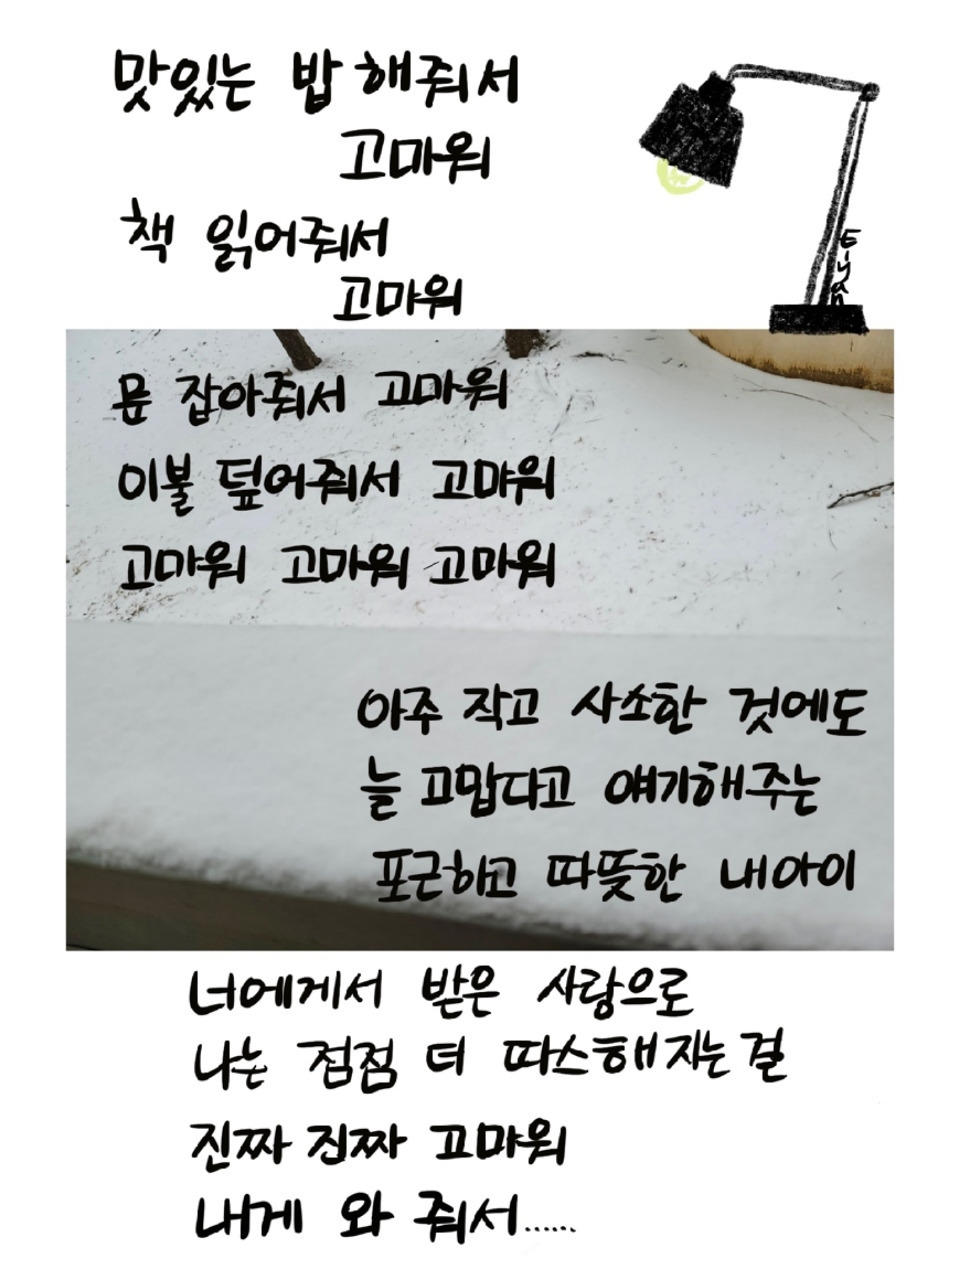 맛있는 밥 해줘서
고마워
책 읽어줘서
고마워
Eiyan
문 잡아줘서 고마워
이불 덮어줘서 고마워
고마워 고마워 고마워
아주 작고 사소한 것에도
늘 고맙다고 얘기해주는
포근하고 따뜻한 내아이
너에게서 받은 사랑으로
나는 점점 더 따스해지는걸
진짜 진짜 고마워
내게 와 줘서......